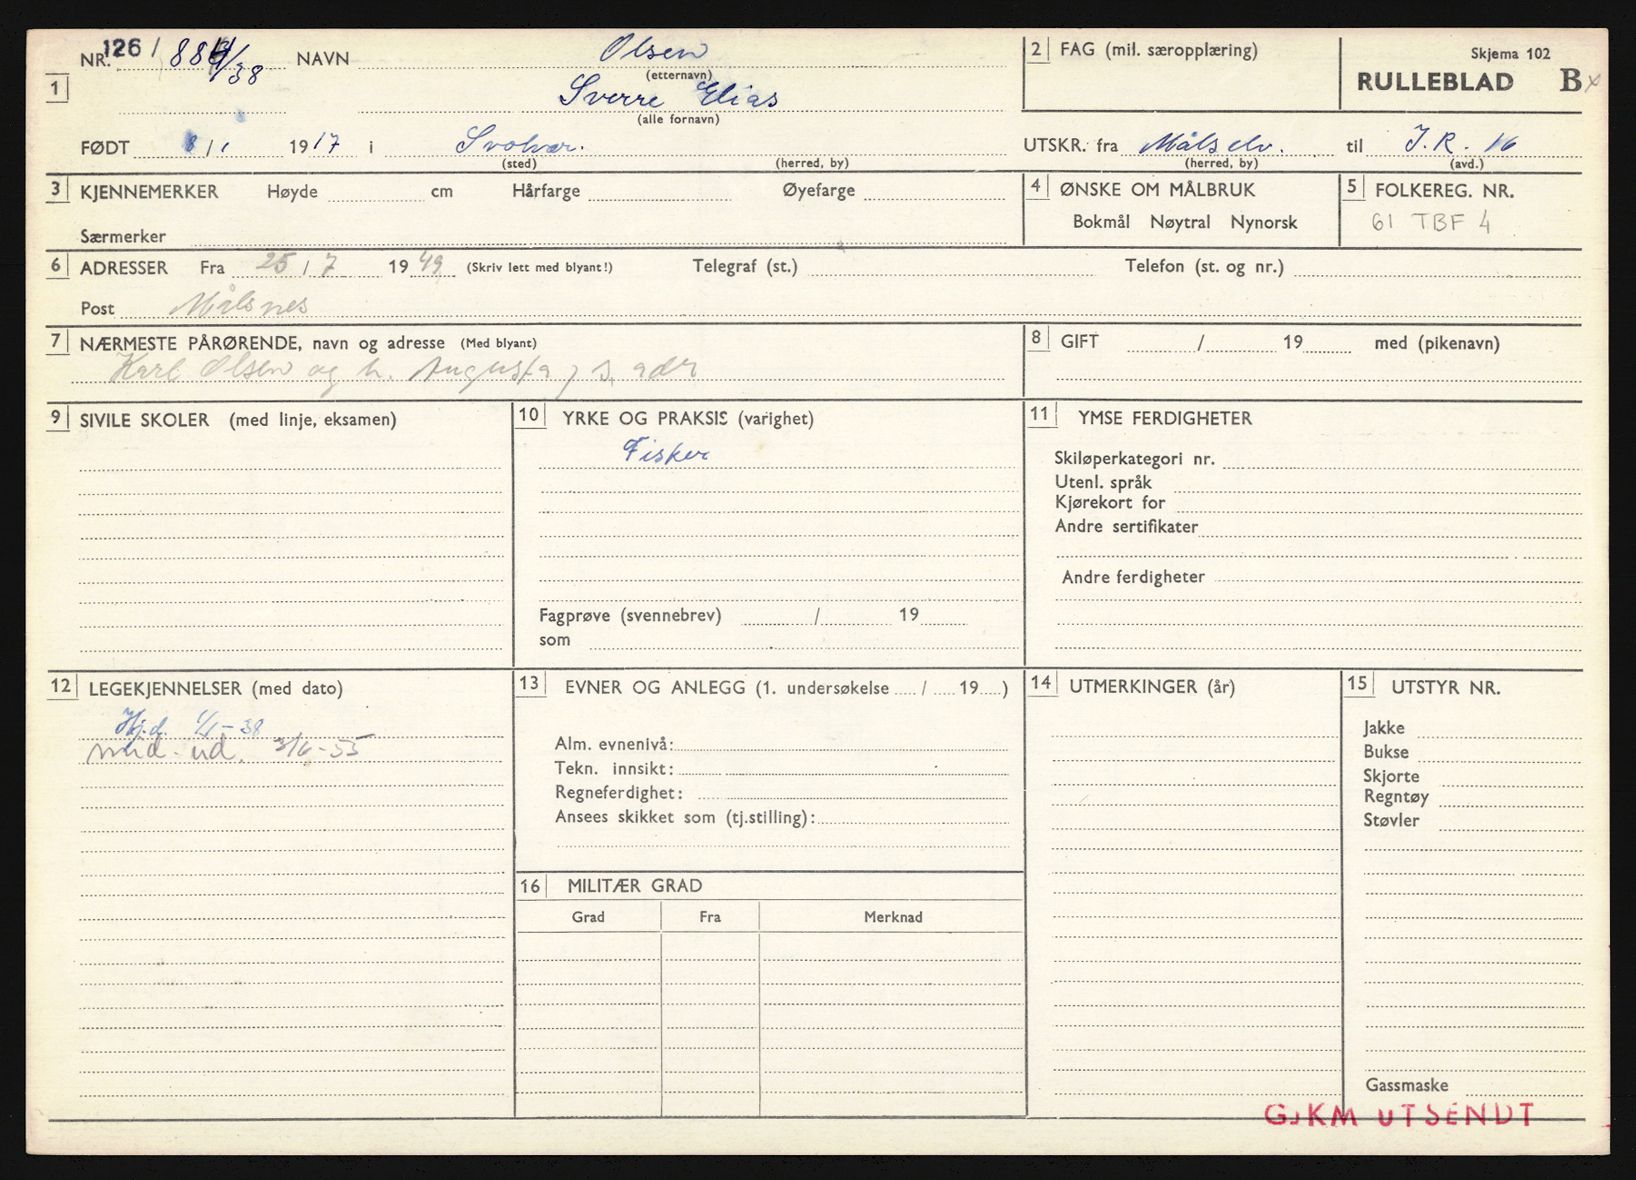 NR. 126/ 88 /38 NAVN Olsen
(etternavn)
1 Sverre Elias
(alle fornavn)
FØDT 1917 i Svolvær.
(sted) (herred, by)
2 FAG (mil. særopplæring)
Skjema 102
RULLEBLAD B
UTSKR. fra Målselv. til I.R. 16
(herred, by) (avd.)
3 KJENNEMERKER Høyde cm Hårfarge Øyefarge
Særmerker
4 ØNSKE OM MÅLBRUK
Bokmål Nøytral Nynorsk
5 FOLKEREG. NR.
61 TBF 4
6 ADRESSER Fra 25/7 1949 (Skriv lett med blyant!) Telegraf (st.) Telefon (st. og nr.)
Post Målsnes
7 NÆRMESTE PÅRØRENDE, navn og adresse (Med blyant)
Karl Olsen og h. Augusta, s. adr
8 GIFT / 19 med (pikenavn)
9 SIVILE SKOLER (med linje, eksamen)
10 YRKE OG PRAKSIS (varighet)
Fisker
Fagprøve (svennebrev) / 19
som
11 YMSE FERDIGHETER
Skiløperkategori nr.
Utenl. språk
Kjørekort for
Andre sertifikater
Andre ferdigheter
12 LEGEKJENNELSER (med dato)
-38
mid. ud. 3/6-55
13 EVNER OG ANLEGG (1. undersøkelse / 19 )
Alm. evnenivå:
Tekn. innsikt:
Regneferdighet:
Ansees skikket som (tj.stilling):
14 UTMERKINGER (år)
15 UTSTYR NR.
Jakke
Bukse
Skjorte
Regntøy
Støvler
Gassmaske
16 MILITÆR GRAD
Grad Fra Merknad
GJKM UTSENDT